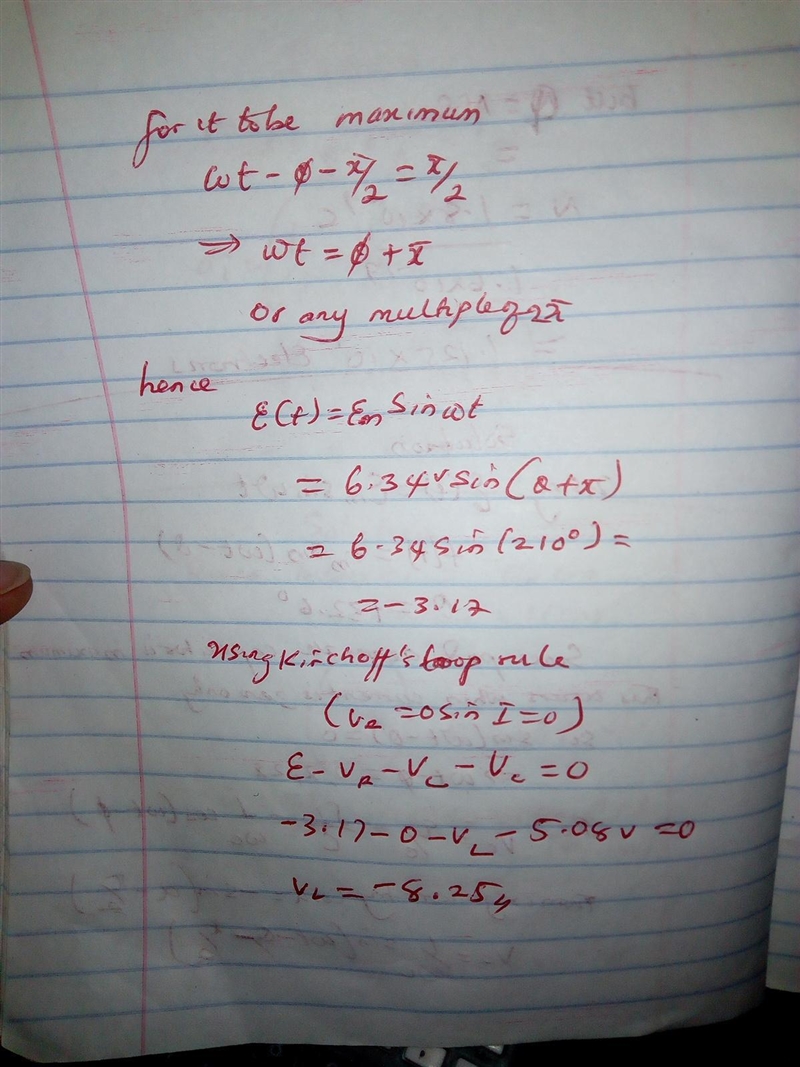 for it to be maximum
ωt - φ - π/2 = π/2
⇒ ωt = φ + π
Or any multiple of 2π
hence
ε(t) = εm Sin ωt
= 6.34v sin(α + π)
= 6.34 sin(210°) =
= -3.17
Using Kirchoff's loop rule
(VR = 0 sin I = 0)
ε - VR - VL - Vc = 0
-3.17 - 0 - VL - 5.08V = 0
VL = -8.25